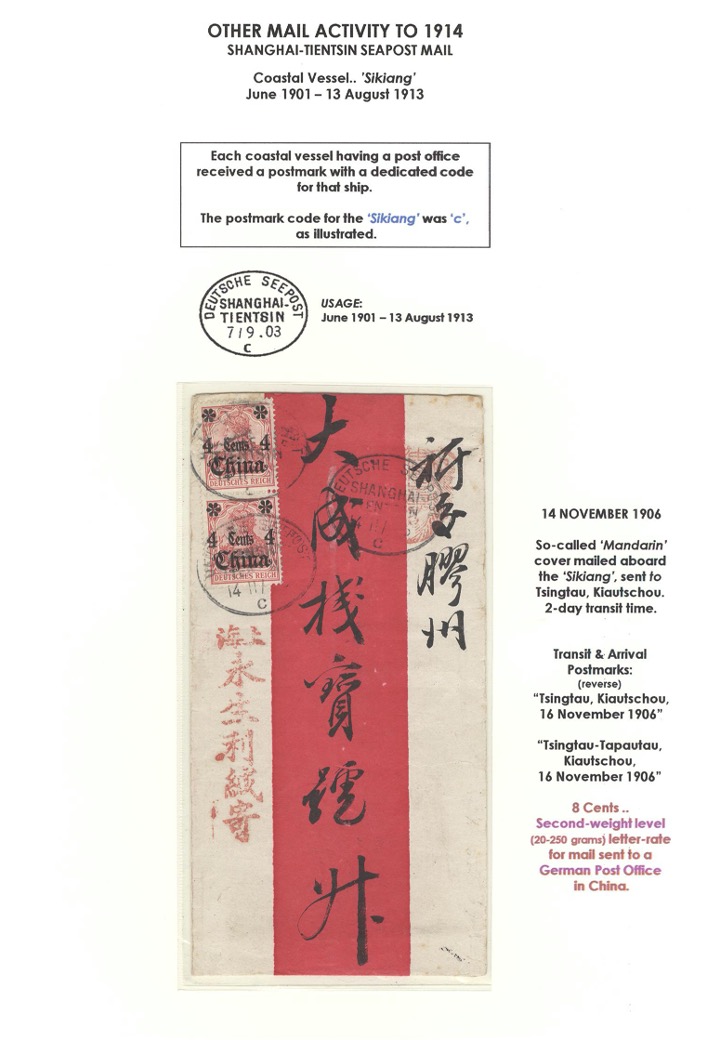 OTHER MAIL ACTIVITY TO 1914
SHANGHAI-TIENTSIN SEAPOST MAIL
Coastal Vessel.. 'Sikiang'
June 1901 – 13 August 1913
Each coastal vessel having a post office
received a postmark with a dedicated code
for that ship.
The postmark code for the 'Sikiang' was 'c',
as illustrated.
DEUTSCHE SEEPOST
SHANGHAI-
TIENTSIN
7/9.03
C
USAGE:
June 1901 – 13 August 1913
4 Cents 4
China
DEUTSCHES REICH
4 Cents 4
China
DEUTSCHES REICH
14 11
C
DEUTSCHE SEE
SHANGHAI
C
膠州
大成棧寶號升
上海
永生利緘寄
14 NOVEMBER 1906
So-called 'Mandarin'
cover mailed aboard
the 'Sikiang', sent to
Tsingtau, Kiautschou.
2-day transit time.
Transit & Arrival
Postmarks:
(reverse)
"Tsingtau, Kiautschou,
16 November 1906"
"Tsingtau-Tapautau,
Kiautschou,
16 November 1906"
8 Cents ..
Second-weight level
(20-250 grams) letter-rate
for mail sent to a
German Post Office
in China.